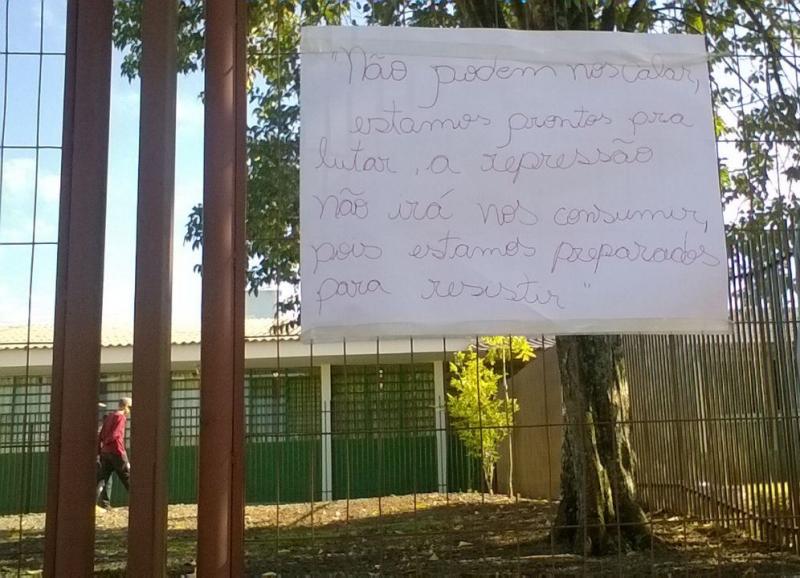 "Não podem nos calar,
estamos prontos pra
lutar, a repressão
não irá nos consumir,
pois estamos preparados
para resistir"